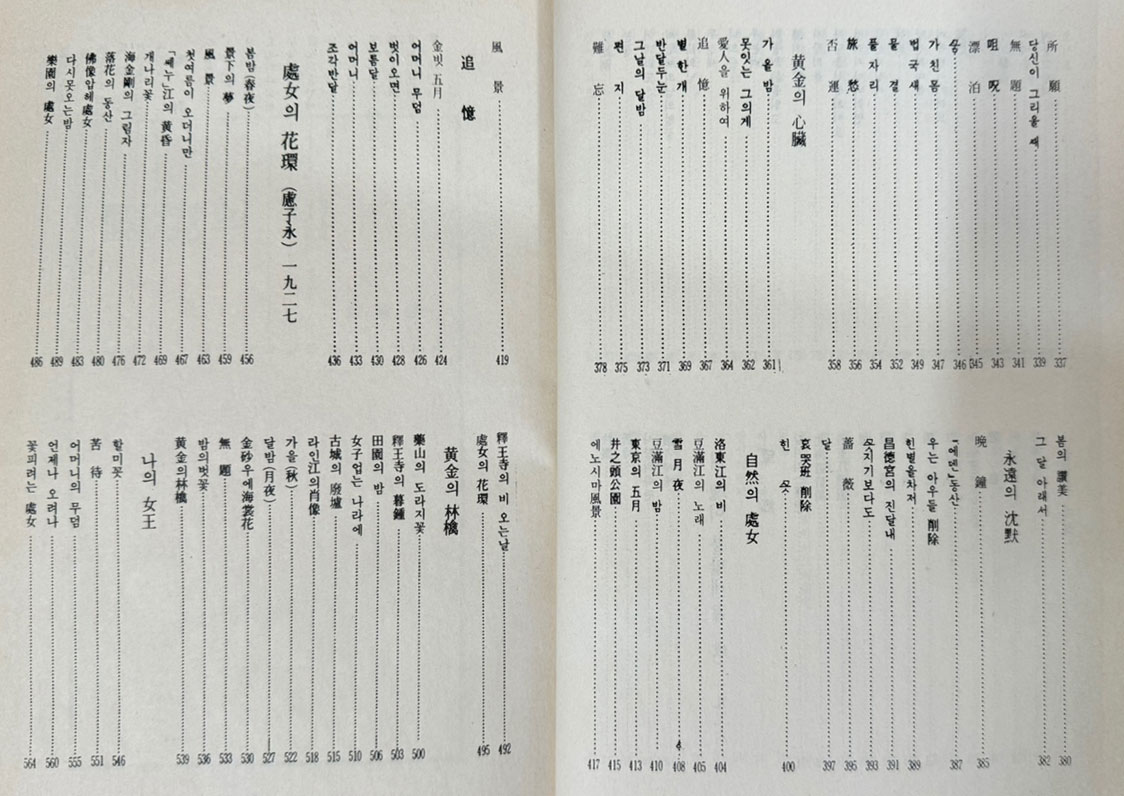 所願 337
당신이 그리울 때 339
無題 341
咀呪 343
漂泊 345
꿈 346
가친몸 347
법국새 349
물결 352
풀자리 354
旅愁 356
否運 358
黄金의 心臟
가을밤 361
못잇는 그의게 362
愛人을 위하여 364
追憶 367
별한개 369
반달두눈 371
그날의 달밤 373
편지 375
難忘 378
봄의 讚美 380
그 달 아래서 382
永遠의 沈默
晩鐘 385
「에덴」동산 387
우는 아우들 削除
힌별을차저 389
昌德宮의 진달내 391
꽃지기보다도 393
薔薇 395
달 397
哀哭班 削除
힌 꽃 400
自然의 處女
洛東江의 비 404
豆滿江의 노래 405
雪月夜 408
豆滿江의 밤 410
東京의 五月 413
井之頭公園 415
에노시마風景 417
風景 419
追憶
金빗 五月 424
어머니 무덤 426
벗이오면 428
보름달 430
어머니 433
조각반달 436
處女의 花環 (盧子永) 一九二七
봄밤(春夜) 456
景下의 夢 459
風景 463
첫여름이 오더니만 467
「쎄누」江의 黄昏 469
개나리꽃 472
海金剛의 그림자 476
落花의 동산 480
佛像압헤處女 483
다시못오는밤 489
樂園의 處女 486
釋王寺의 비 오는날 492
處女의 花環 495
黄金의 林檎
藥山의 도라지꽃 500
釋王寺의 暮鍾 503
田園의 밤 506
女子업는 나라에 510
古城의 廢墟 515
라인江의肖像 518
가을(秋) 522
달밤(月夜) 527
金砂우에海棠花 530
無題 533
밤의벗꽃 536
黄金의林檎 539
나의 女王
할미꽃 546
苦待 551
어머니의 무덤 555
언제나 오려나 560
꽃피려는 處女 564